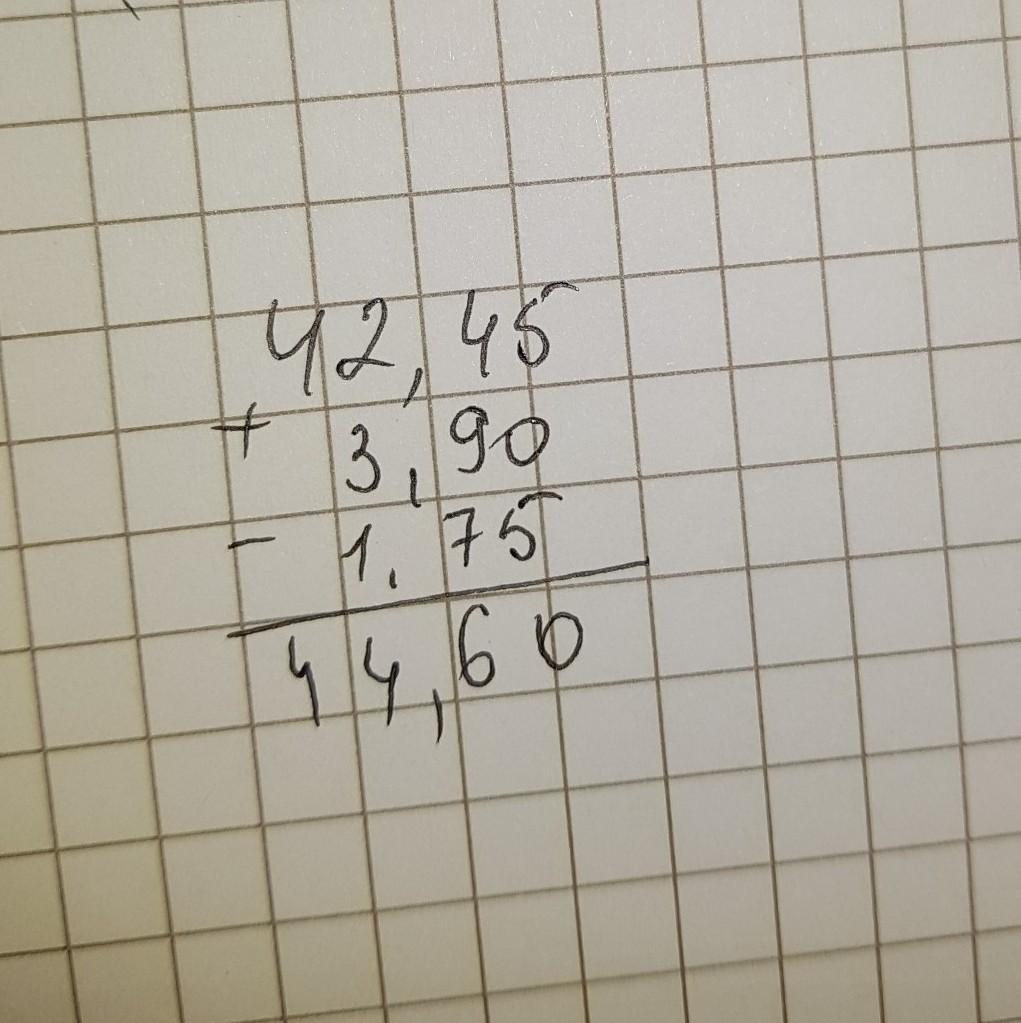 42,45
+ 3,90
- 1,75
44,60